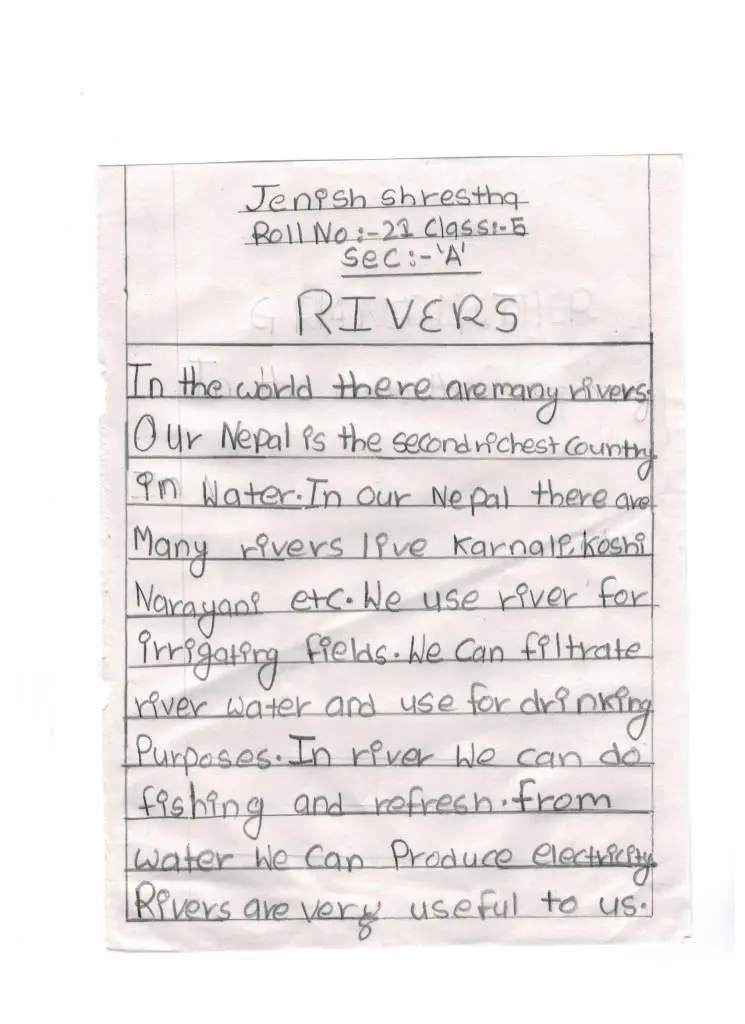 Jenish Shrestha
Roll No:-21 Class:-5
Sec:-'A'
RIVERS
In the world there are many rivers.
Our Nepal is the second richest country
in Water. In our Nepal there are
Many rivers live Karnali, Koshi
Narayani etc. We use river for
irrigating fields. We can filtrate
river water and use for drinking
Purposes. In river we can do
fishing and refresh. from
water we can Produce electricity.
Rivers are very useful to us.